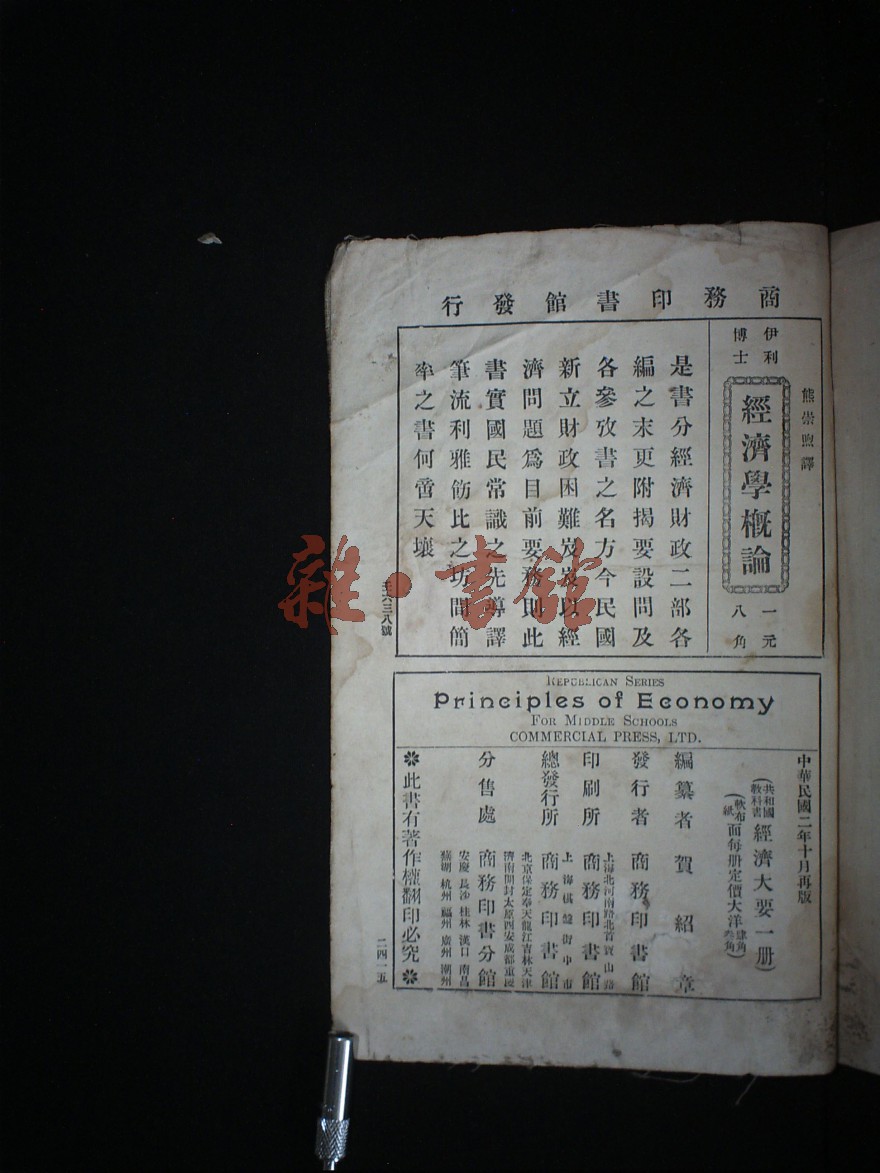 商務印書館發行
熊崇煦譯
伊利博士
經濟學概論
一元八角
是書分經濟財政二部各
編之末更附揭要設問及
各參攷書之名方今民國
新立財政困難岌岌以經
濟問題爲目前要務則此
書實國民常識之先導譯
筆流利雅飭比之坊間簡
率之書何啻天壤
六三八號
REPUBLICAN SERIES
Principles of Economy
FOR MIDDLE SCHOOLS
COMMERCIAL PRESS, LTD.
中華民國二年十月再版
(共和國教科書 經濟大要一册)
(軟布面 紙面 每册定價大洋 肆角 叁角)
編纂者 賀紹章
發行者 商務印書館
上海北河南路北首寶山路
印刷所 商務印書館
上海棋盤街中市
總發行所 商務印書館
北京保定奉天龍江吉林天津
濟南開封太原西安成都重慶
分售處 商務印書分館
安慶長沙桂林漢口南昌
蕪湖杭州福州廣州潮州
❋此書有著作權翻印必究❋
二四一五
雜·書館